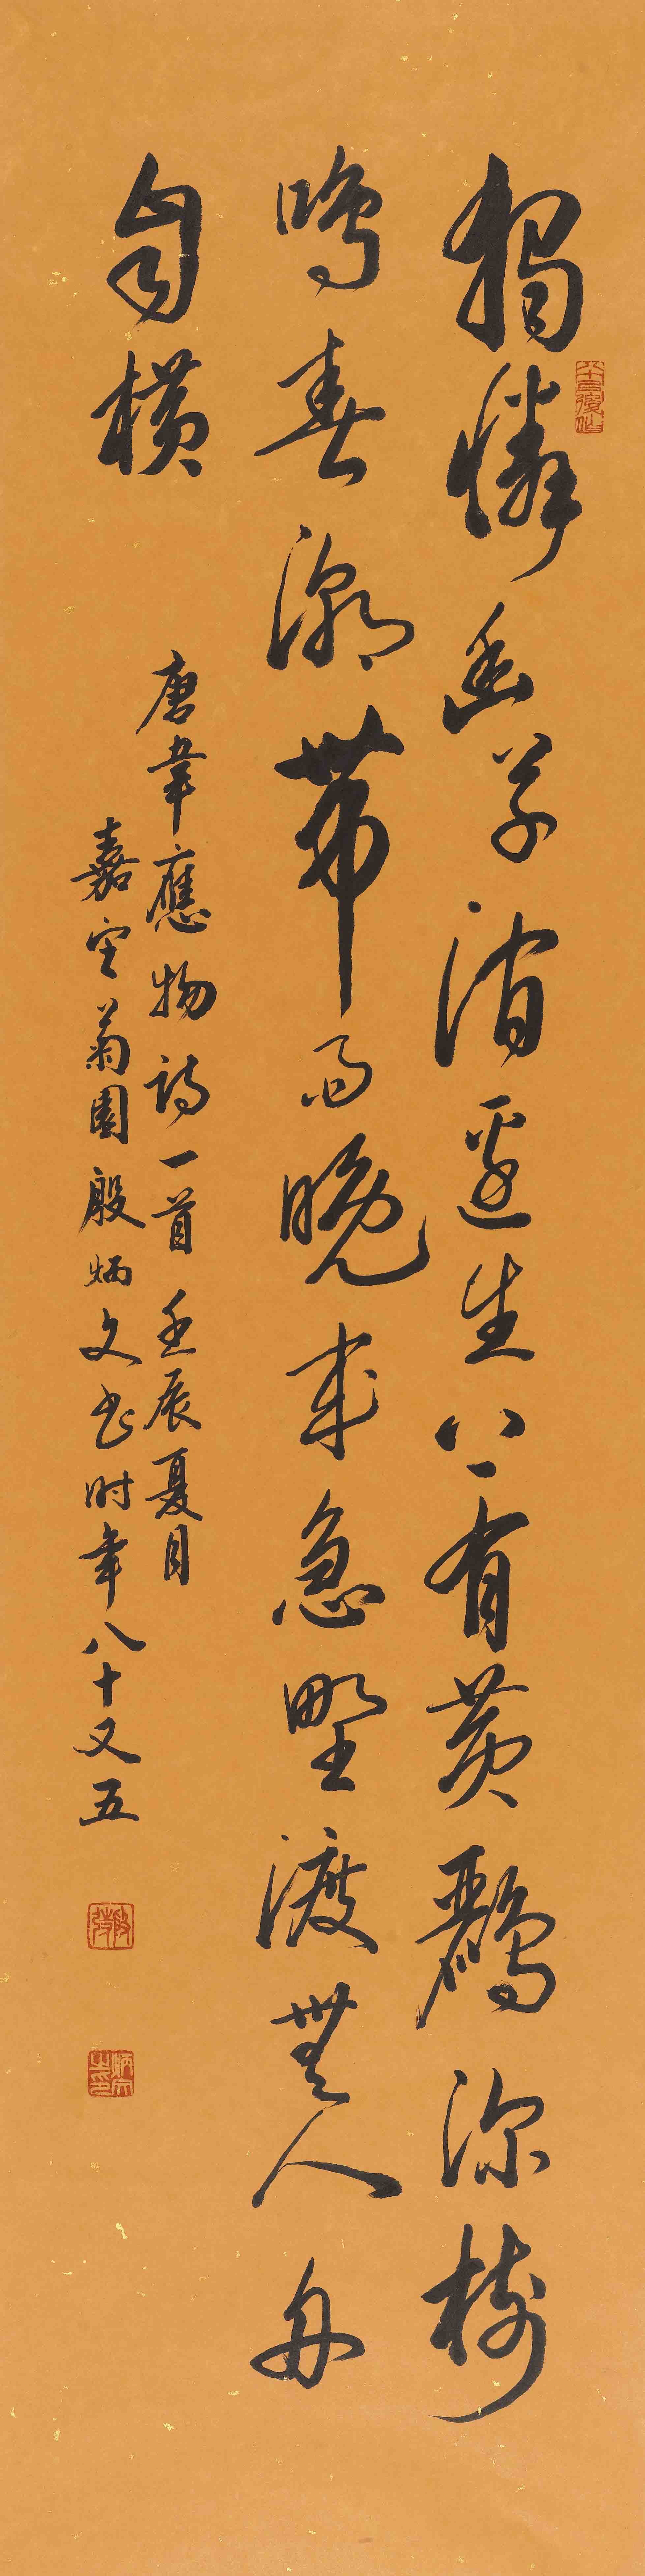 獨憐幽草澗邊生上有黃鸝深樹
鳴春潮帶雨晚來急野渡無人舟
自橫
唐韋應物詩一首 壬辰夏月
嘉定菊園殷炳文书时年八十又五
炳文之印